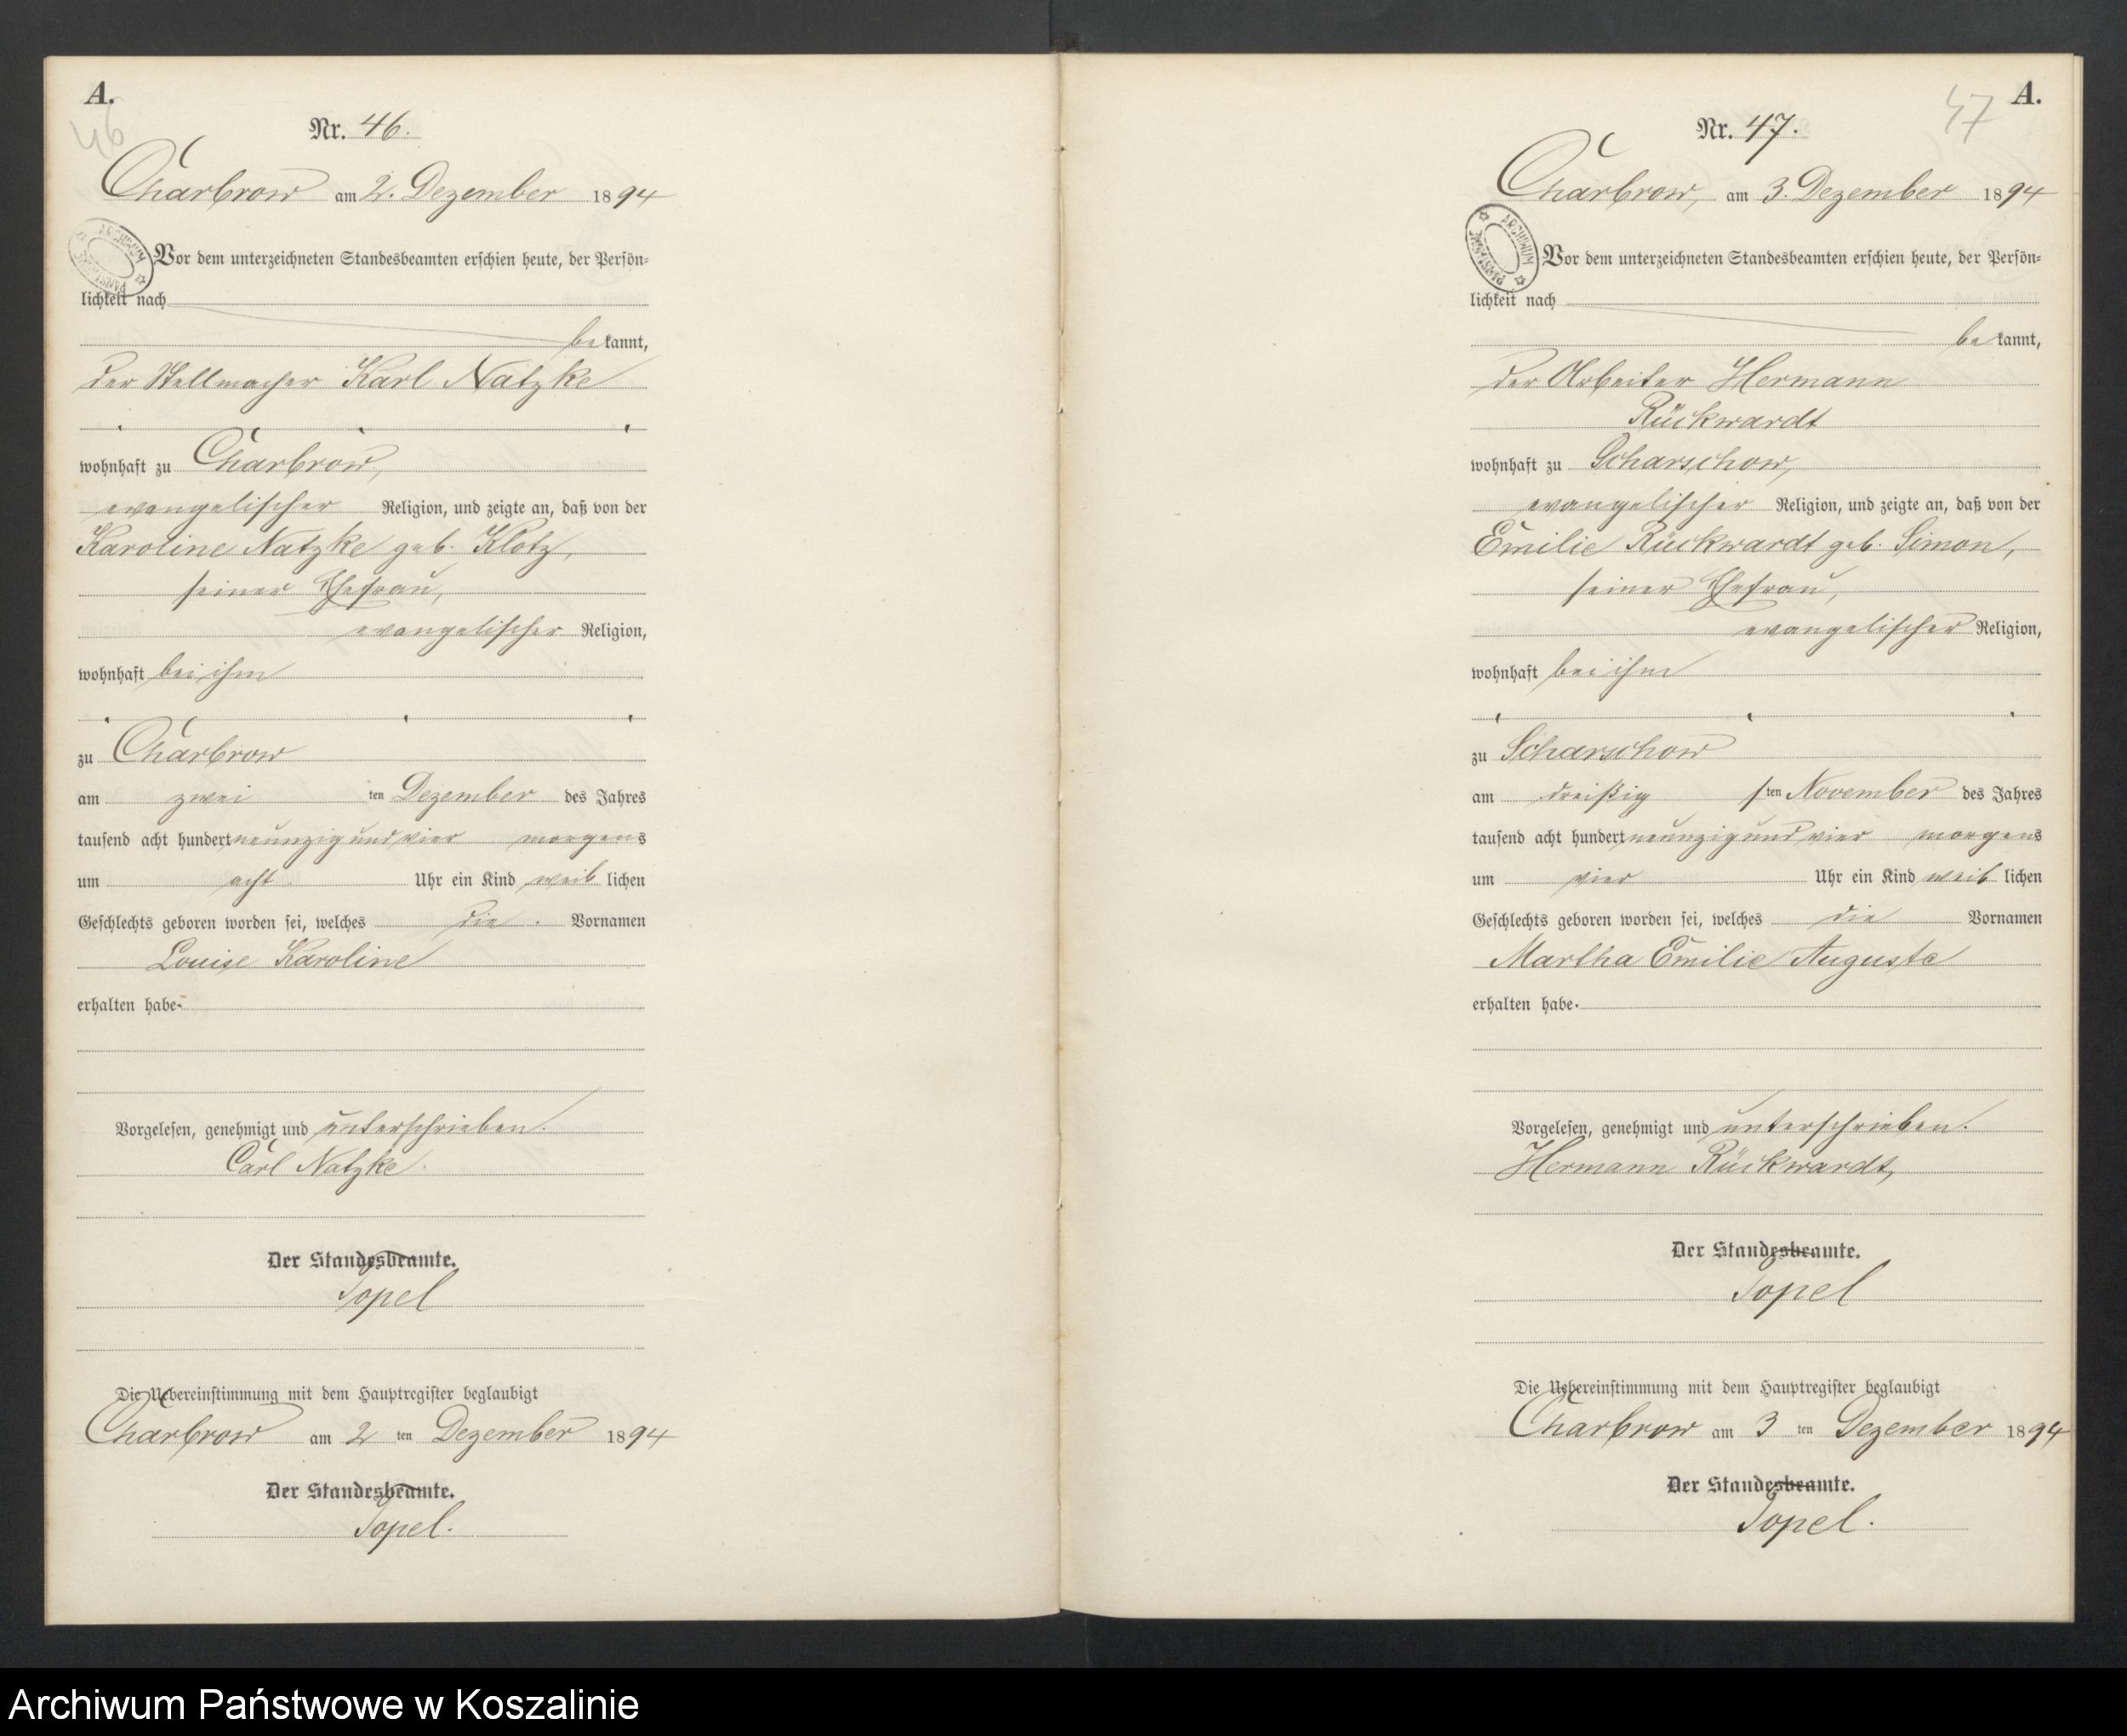 A.
46
Nr. 46.
Charbrow am 2. Dezember 1894
Vor dem unterzeichneten Standesbeamten erschien heute, der Persön-
lichkeit nach
bekannt,
der Stellmacher Karl Natzke
wohnhaft zu Charbrow,
evangelischer Religion, und zeigte an, daß von der
Karoline Natzke geb. Klotz,
seiner Ehefrau,
evangelischer Religion,
wohnhaft bei ihm
zu Charbrow
am zwei ten Dezember des Jahres
tausend acht hundert neunzig und vier morgens
um acht Uhr ein Kind weiblichen
Geschlechts geboren worden sei, welches die Vornamen
Louise Karoline
erhalten habe.
Vorgelesen, genehmigt und unterschrieben.
Carl Natzke.
Der Standesbeamte.
Topel
Die Uebereinstimmung mit dem Hauptregister beglaubigt
Charbrow am 2 ten Dezember 1894
Der Standesbeamte.
Topel.
A.
47
Nr. 47.
Charbrow, am 3. Dezember 1894
ARCHIWUM PAŃSTWOWE
Vor dem unterzeichneten Standesbeamten erschien heute, der Persön-
lichkeit nach
bekannt,
der Arbeiter Hermann
Rückwardt
wohnhaft zu Scharschow,
evangelischer Religion, und zeigte an, daß von der
Emilie Rückwardt geb. Simon,
seiner Ehefrau,
evangelischer Religion,
wohnhaft bei ihm
zu Scharschow
am dreißig sten November des Jahres
tausend acht hundert neunzig und vier morgens
um vier Uhr ein Kind weiblichen
Geschlechts geboren worden sei, welches die Vornamen
Martha Emilie Auguste
erhalten habe.
Vorgelesen, genehmigt und unterschrieben.
Hermann Rückwardt,
Der Standesbeamte.
Topel
Die Uebereinstimmung mit dem Hauptregister beglaubigt
Charbrow am 3 ten Dezember 1894
Der Standesbeamte.
Topel.
Archiwum Państwowe w Koszalinie